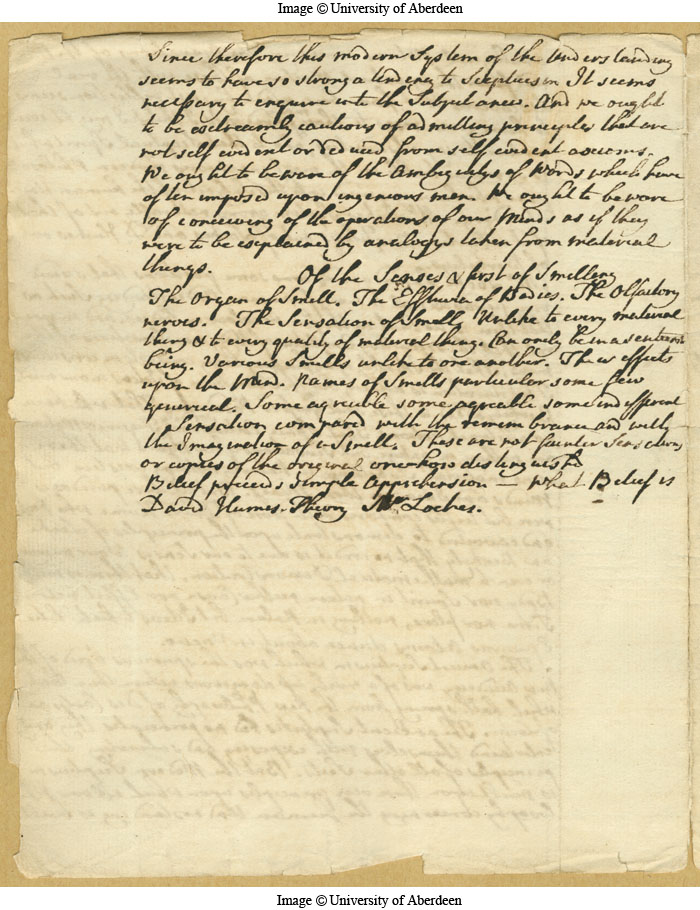 Image © University of Aberdeen
Since therefore this modern System of the Understanding
seems to have so strong a tendency to Scepticism It seems
necessary to enquire into the Subject anew. And we ought
to be extreamly cautious of admitting principles that are
not self evident or deduced from self evident axioms.
We ought to beware of the Ambiguitys of Words which have
often imposed upon ingenious men. We ought to beware
of conceiving of the operations of our Minds as if they
were to be explained by analogys taken from material
things.
Of the Senses & first of Smelling
The Organ of Smell. The Effluvia of Bodies. The Olfactory
nerves. The Sensation of Smell Unlike to every material
thing & to every quality of material thing. Can only be in a sentient
being. Various Smells unlike to one another. effects
upon the Mind. Names of Smells particular some few
general. Some agreable some some indifferent
Sensation compared with the remembrance and with
the Imagination of a Smell. These are not fainter Sensations
or copies of the original one how distinguishd
Belief preceeds simple Apprehension — What Belief is
David Humes Theory Mr Lockes.
Image © University of Aberdeen